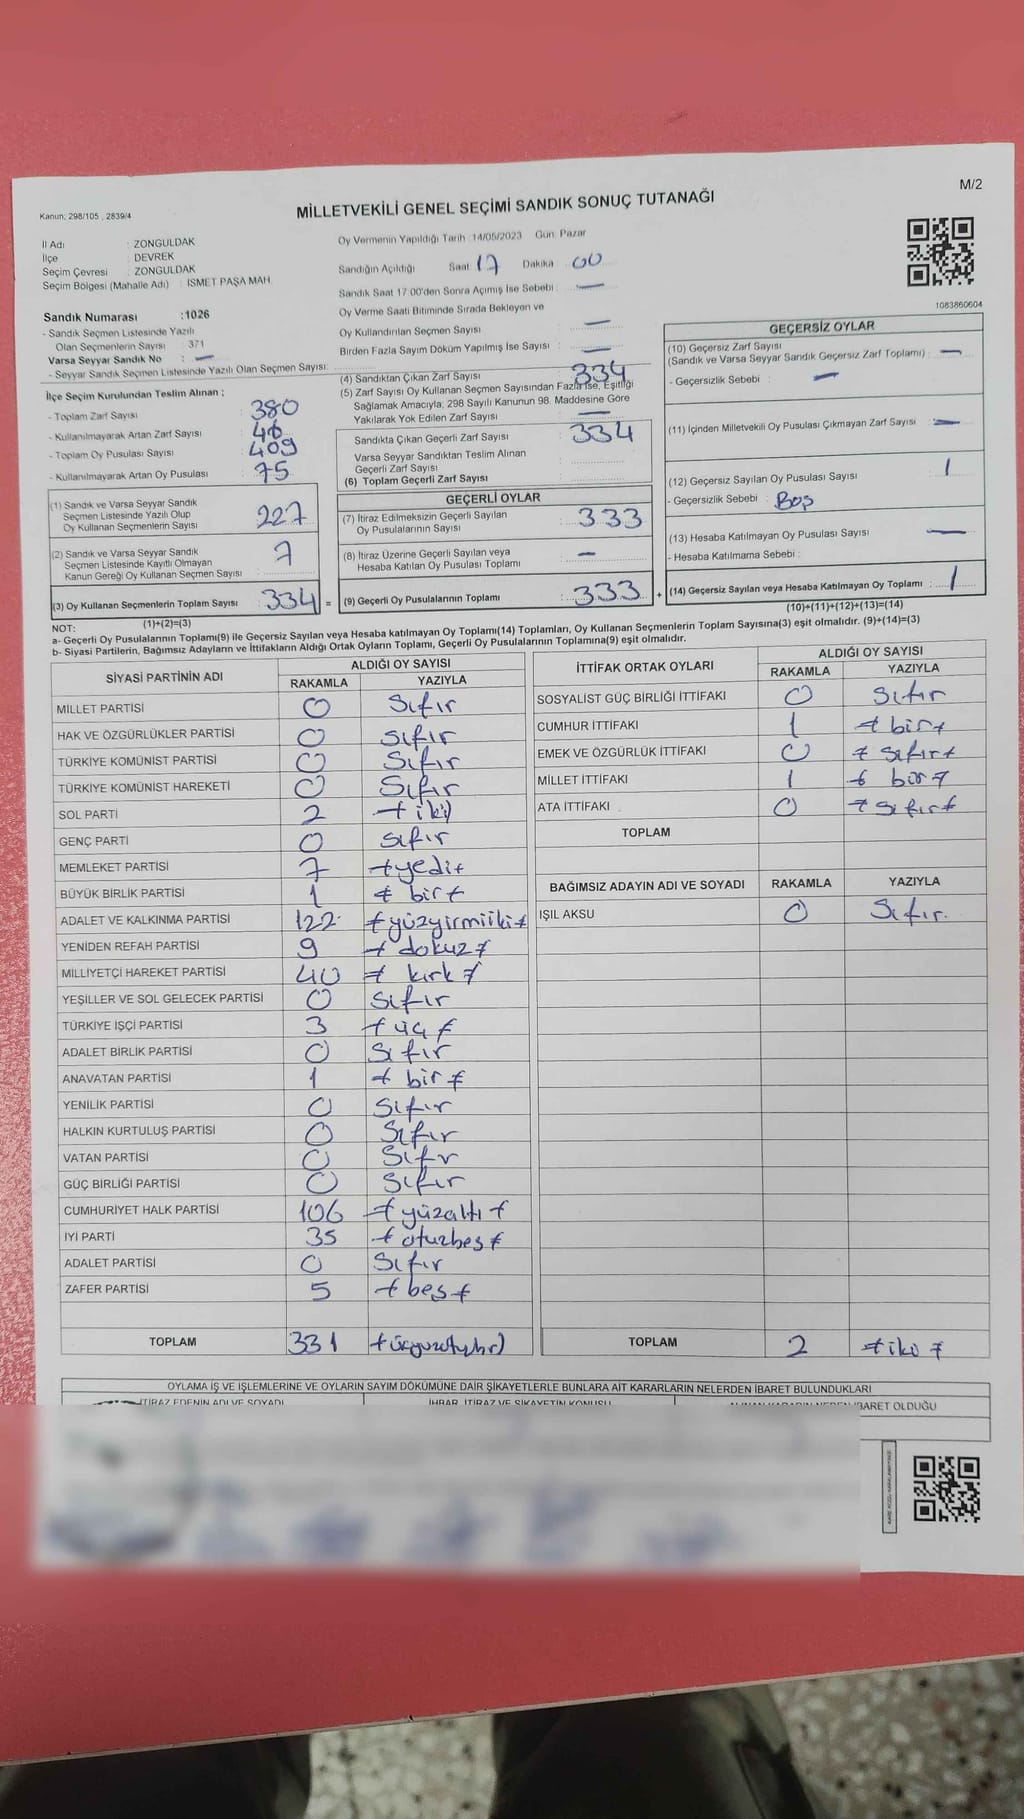 M/2
Kanun; 298/105 , 2839/4
MİLLETVEKİLİ GENEL SEÇİMİ SANDIK SONUÇ TUTANAĞI
İl Adı : ZONGULDAK
İlçe : DEVREK
Seçim Çevresi : ZONGULDAK
Seçim Bölgesi (Mahalle Adı) : İSMET PAŞA MAH.
Oy Vermenin Yapıldığı Tarih :14/05/2023 Gün: Pazar
Sandığın Açıldığı Saat 17 Dakika 00
Sandık Saat 17.00'den Sonra Açımış İse Sebebi : —
Oy Verme Saati Bitiminde Sırada Bekleyen ve
Oy Kullandırılan Seçmen Sayısı : —
Birden Fazla Sayım Döküm Yapılmış İse Sayısı : —
1083860604
Sandık Numarası :1026
- Sandık Seçmen Listesinde Yazılı
Olan Seçmenlerin Sayısı : 371
Varsa Seyyar Sandık No : —
- Seyyar Sandık Seçmen Listesinde Yazılı Olan Seçmen Sayısı:
İlçe Seçim Kurulundan Teslim Alınan ;
- Toplam Zarf Sayısı : 380
- Kullanılmayarak Artan Zarf Sayısı : 46
- Toplam Oy Pusulası Sayısı : 409
- Kullanılmayarak Artan Oy Pusulası : 75
(1) Sandık ve Varsa Seyyar Sandık
Seçmen Listesinde Yazılı Olup
Oy Kullanan Seçmenlerin Sayısı : 227
(2) Sandık ve Varsa Seyyar Sandık
Seçmen Listesinde Kayıtlı Olmayan
Kanun Gereği Oy Kullanan Seçmen Sayısı : 7
(3) Oy Kullanan Seçmenlerin Toplam Sayısı : 334 =
(1)+(2)=(3)
(4) Sandıktan Çıkan Zarf Sayısı : 334
(5) Zarf Sayısı Oy Kullanan Seçmen Sayısından Fazla İse, Eşitliği
Sağlamak Amacıyla, 298 Sayılı Kanunun 98. Maddesine Göre
Yakılarak Yok Edilen Zarf Sayısı : —
Sandıkta Çıkan Geçerli Zarf Sayısı : 334
Varsa Seyyar Sandıktan Teslim Alınan
Geçerli Zarf Sayısı :
(6) Toplam Geçerli Zarf Sayısı :
GEÇERLİ OYLAR
(7) İtiraz Edilmeksizin Geçerli Sayılan
Oy Pusulalarının Sayısı : 333
(8) İtiraz Üzerine Geçerli Sayılan veya
Hesaba Katılan Oy Pusulası Toplamı : —
(9) Geçerli Oy Pusulalarının Toplamı : 333 +
GEÇERSİZ OYLAR
(10) Geçersiz Zarf Sayısı
(Sandık ve Varsa Seyyar Sandık Geçersiz Zarf Toplamı) : —
- Geçersizlik Sebebi : —
(11) İçinden Milletvekili Oy Pusulası Çıkmayan Zarf Sayısı : —
(12) Geçersiz Sayılan Oy Pusulası Sayısı : 1
- Geçersizlik Sebebi : Boş
(13) Hesaba Katılmayan Oy Pusulası Sayısı : —
- Hesaba Katılmama Sebebi :
(14) Geçersiz Sayılan veya Hesaba Katılmayan Oy Toplamı : 1
(10)+(11)+(12)+(13)=(14)
NOT:
a- Geçerli Oy Pusulalarının Toplamı(9) ile Geçersiz Sayılan veya Hesaba katılmayan Oy Toplamı(14) Toplamları, Oy Kullanan Seçmenlerin Toplam Sayısına(3) eşit olmalıdır. (9)+(14)=(3)
b- Siyasi Partilerin, Bağımsız Adayların ve İttifakların Aldığı Ortak Oyların Toplamı, Geçerli Oy Pusulalarının Toplamına(9) eşit olmalıdır.
SİYASİ PARTİNİN ADI ALDIĞI OY SAYISI
RAKAMLA YAZIYLA
MİLLET PARTİSİ 0 Sıfır
HAK VE ÖZGÜRLÜKLER PARTİSİ 0 sıfır
TÜRKİYE KOMÜNİST PARTİSİ 0 Sıfır
TÜRKİYE KOMÜNİST HAREKETİ 0 Sıfır
SOL PARTİ 2 iki
GENÇ PARTİ 0 sıfır
MEMLEKET PARTİSİ 7 yedi
BÜYÜK BİRLİK PARTİSİ 1 bir
ADALET VE KALKINMA PARTİSİ 122 yüzyirmiiki
YENİDEN REFAH PARTİSİ 9 dokuz
MİLLİYETÇİ HAREKET PARTİSİ 40 kırk
YEŞİLLER VE SOL GELECEK PARTİSİ 0 sıfır
TÜRKİYE İŞÇİ PARTİSİ 3 üç
ADALET BİRLİK PARTİSİ 0 Sıfır
ANAVATAN PARTİSİ 1 bir
YENİLİK PARTİSİ 0 Sıfır
HALKIN KURTULUŞ PARTİSİ 0 Sıfır
VATAN PARTİSİ 0 Sıfır
GÜÇ BİRLİĞİ PARTİSİ 0 Sıfır
CUMHURİYET HALK PARTİSİ 106 yüzaltı
İYİ PARTİ 35 otuzbeş
ADALET PARTİSİ 0 Sıfır
ZAFER PARTİSİ 5 beş
TOPLAM 331
İTTİFAK ORTAK OYLARI ALDIĞI OY SAYISI
RAKAMLA YAZIYLA
SOSYALİST GÜÇ BİRLİĞİ İTTİFAKI 0 Sıfır
CUMHUR İTTİFAKI 1 bir
EMEK VE ÖZGÜRLÜK İTTİFAKI 0 sıfır
MİLLET İTTİFAKI 1 bir
ATA İTTİFAKI 0 sıfır
TOPLAM
BAĞIMSIZ ADAYIN ADI VE SOYADI RAKAMLA YAZIYLA
IŞIL AKSU 0 Sıfır.
TOPLAM 2 iki
OYLAMA İŞ VE İŞLEMLERİNE VE OYLARIN SAYIM DÖKÜMÜNE DAİR ŞİKAYETLERLE BUNLARA AİT KARARLARIN NELERDEN İBARET BULUNDUKLARI
İTİRAZ EDENİN ADI VE SOYADI İHBAR, İTİRAZ VE ŞİKAYETİN KONUSU ALINAN KARARIN NEDEN İBARET OLDUĞU